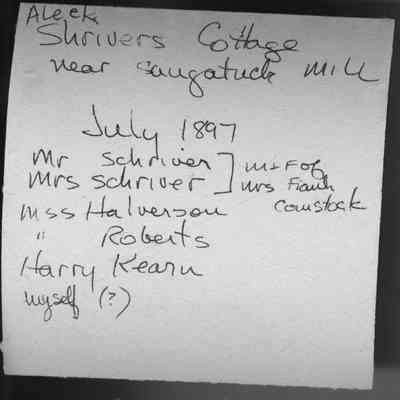 Aleck
Shrivers Cottage
near saugatuck mill
July 1897
Mr Schriver ] M+F of
Mrs Schriver ] Mrs Frank
Comstock
Mss Halverson
" Roberts
Harry Kearn
myself (?)